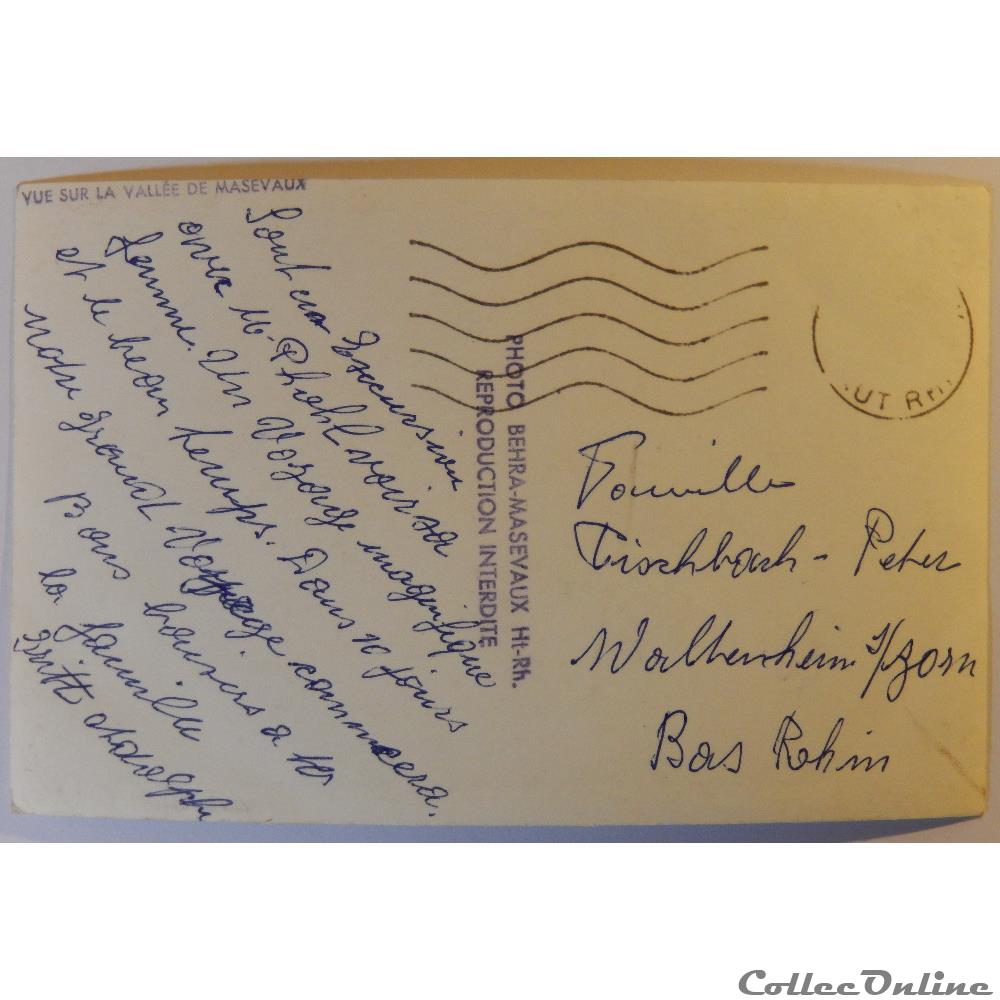 VUE SUR LA VALLÉE DE MASEVAUX
Sont en Excursion
avec M. voir sa
femme. Un Voyage magnifique
et le beau temps. Dans 10 jours
Notre grand Voyage commencera.
Bons baisers a ta
la famille
Britt
PHOTO BEHRA-MASEVAUX Ht-Rh.
REPRODUCTION INTERDITE
UT RHI
Famille
Fischbach - Peter
Waltenheim s/Zorn
Bas Rhin
CollecOnline